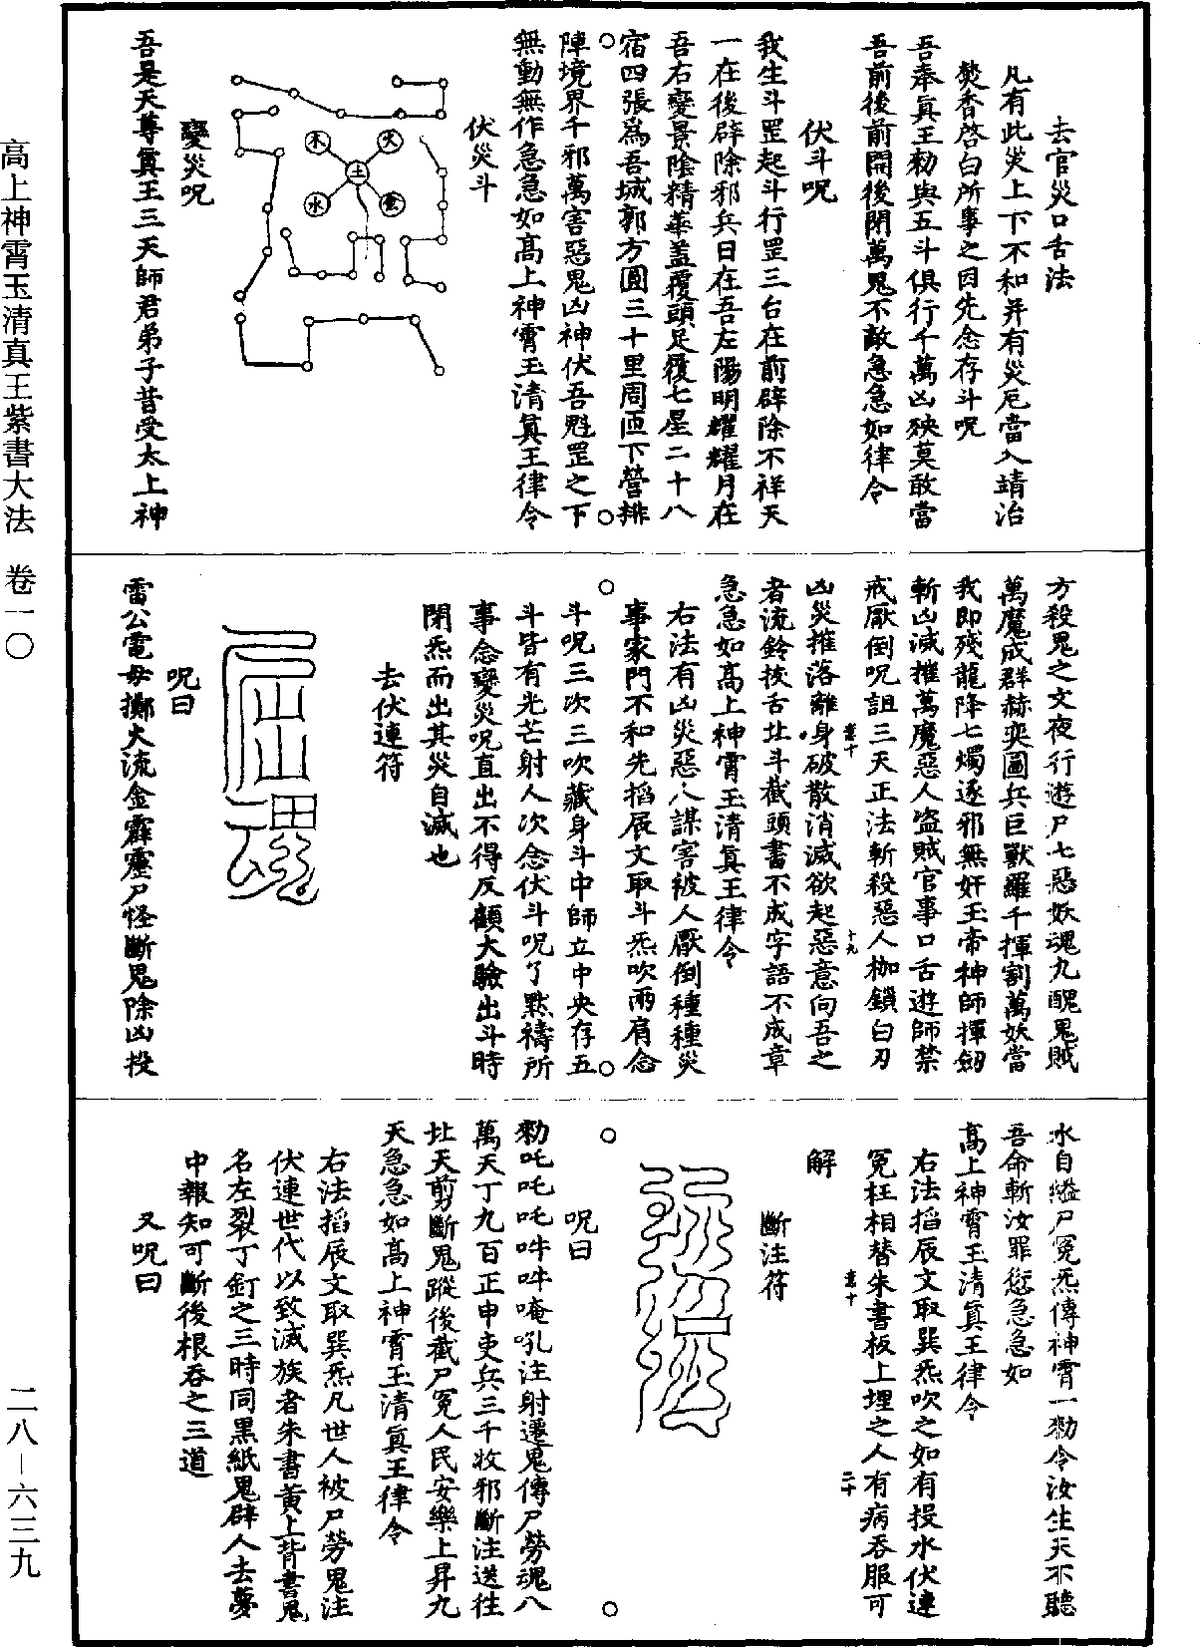 高上神霄玉清真王紫書大法 卷一〇
二八—六三九
去官災口舌法
凡有此災上下不和并有災厄當入靖治
焚香啓白所事之因先念存斗呪
吾奉真王勑與五斗俱行千萬凶殃莫敢當
吾前後前開後閉萬鬼不敵急急如律令
伏斗呪
我生斗罡起斗行罡三台在前辟除不祥天
一在後辟除邪兵日在吾左陽明耀耀月在
吾右變景陰精華盖覆頭足履七星二十八
宿四張為吾城郭方圓三十里周匝下營排
陣境界千邪萬害惡鬼凶神伏吾魁罡之下
無動無作急急如高上神霄玉清真王律令
伏災斗
火
木
土
水
金
變災呪
吾是天尊真王三天師君弟子昔受太上神
方殺鬼之文夜行遊尸七惡妖魂九醜鬼賊
萬魔成群赫奕圖兵巨獸羅千揮割萬妖當
我即殘龍降七燭逐邪無奸玉帝神師揮劒
斬凶滅摧萬魔惡人盗賊官事口舌遊師禁
戒厭倒呪詛三天正法斬殺惡人枷鎖白刃
卷十
十九
凶災摧落離身破散消滅欲起惡意向吾之
者流鈴拔舌北斗截頭書不成字語不成章
急急如高上神霄玉清真王律令
右法有凶災惡人謀害被人厭倒種種災
事家門不和先搯辰文取斗炁吹兩肩念
斗呪三次三吹藏身斗中師立中央存五
斗皆有光芒射人次念伏斗呪了黙禱所
事念變災呪直出不得反顧大驗出斗時
閉炁而出其災自滅也
去伏連符
呪曰
雷公電母擲火流金霹靂尸怪斷鬼除凶投
水自縊尸冤炁傳神霄一勑令汝生天不聽
吾命斬汝罪愆急急如
高上神霄玉清真王律令
右法搯辰文取巽炁吹之如有投水伏連
冤枉相替朱書板上埋之人有病吞服可
卷十
二十
解
斷注符
呪曰
勑吒吒吒吽吽唵吼注射遷鬼傳尸勞魂八
萬天丁九百正申吏兵三千收邪斷注送往
北天剪斷鬼蹤後截尸冤人民安樂上昇九
天急急如高上神霄玉清真王律令
右法搯辰文取巽炁凡世人被尸勞鬼注
伏連世代以致滅族者朱書黄上背書鬼
名左裂丁釘之三時同黒紙鬼辟人去夢
中報知可斷後根吞之三道
又呪曰